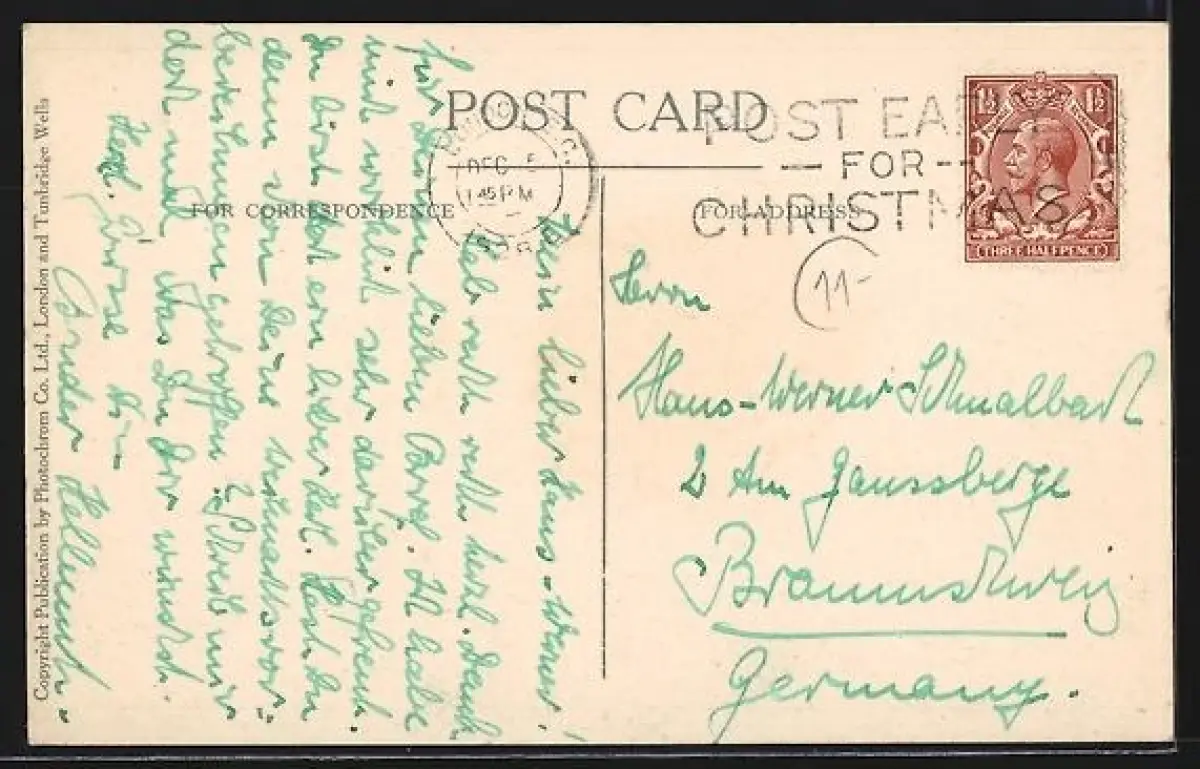 POST CARD
FOR CORRESPONDENCE
FOR ADDRESS
POST EARLY
FOR
CHRISTMAS
DEC 5
1.45 PM
1½ 1½
THREE HALFPENCE
11-
Herrn
Hans-Werner Schmalbach
2 Am Gaussberge
Braunschweig
Germany.
Mein lieber Hans-Werner!
Hab recht recht herzl. Dank
für Deinen lieben Brief. Ich habe
mich wirklich sehr darüber gefreut.
Du bist doch ein lieber Kerl. Hast Du
denn von Deine Weihnachtsvor-
bereitungen getroffen? Schreib mir
doch mal was Du Dir wünscht.
Herzl. Grüsse
Bruder Hellmuth.
Copyright Publication by Photochrom Co. Ltd., London and Tunbridge Wells